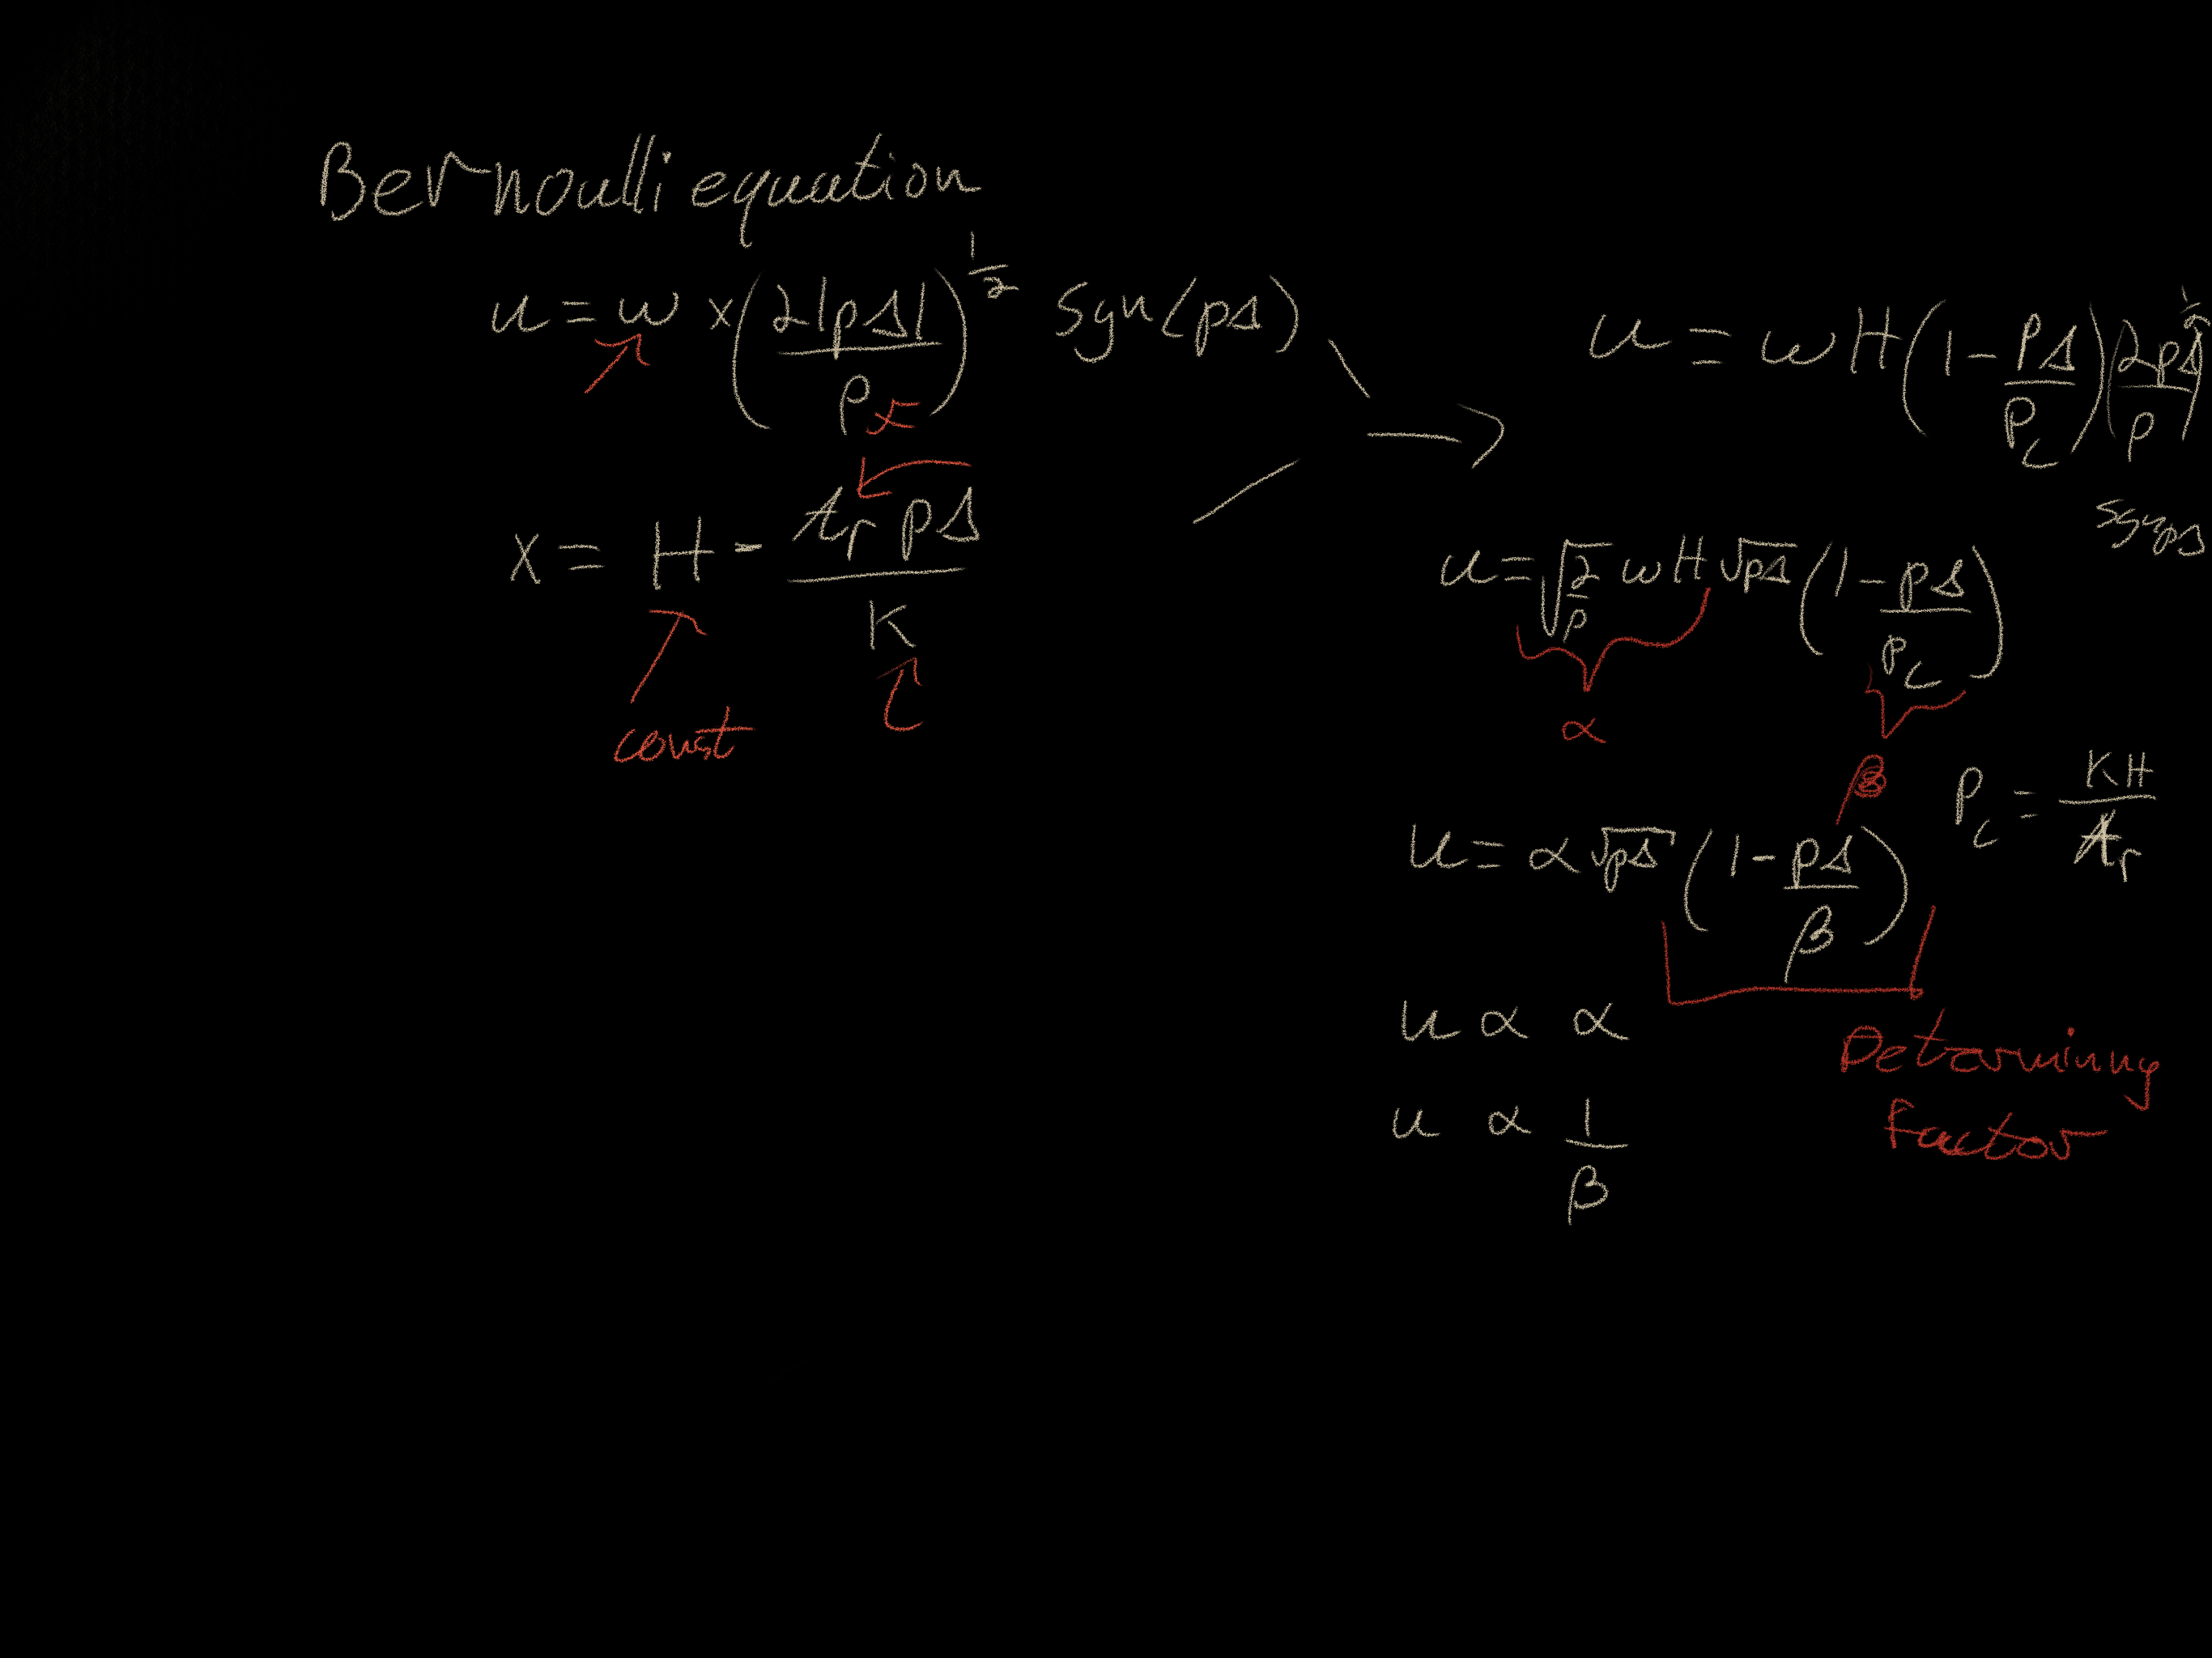 Bernoulli equation
u = w x (2|pΔ| / ρ)^{1/2} sgn(pΔ)
x = H - A_r pΔ / K
const
u = w H (1 - pΔ / P_c) (2pΔ / ρ)^{1/2}
sgn pΔ
u = √(2/ρ) w H √pΔ (1 - pΔ / P_c)
α
β
P_c = KH / A_r
u = α √pΔ (1 - pΔ / β)
u ∝ α
Determining
factor
u ∝ 1 / β